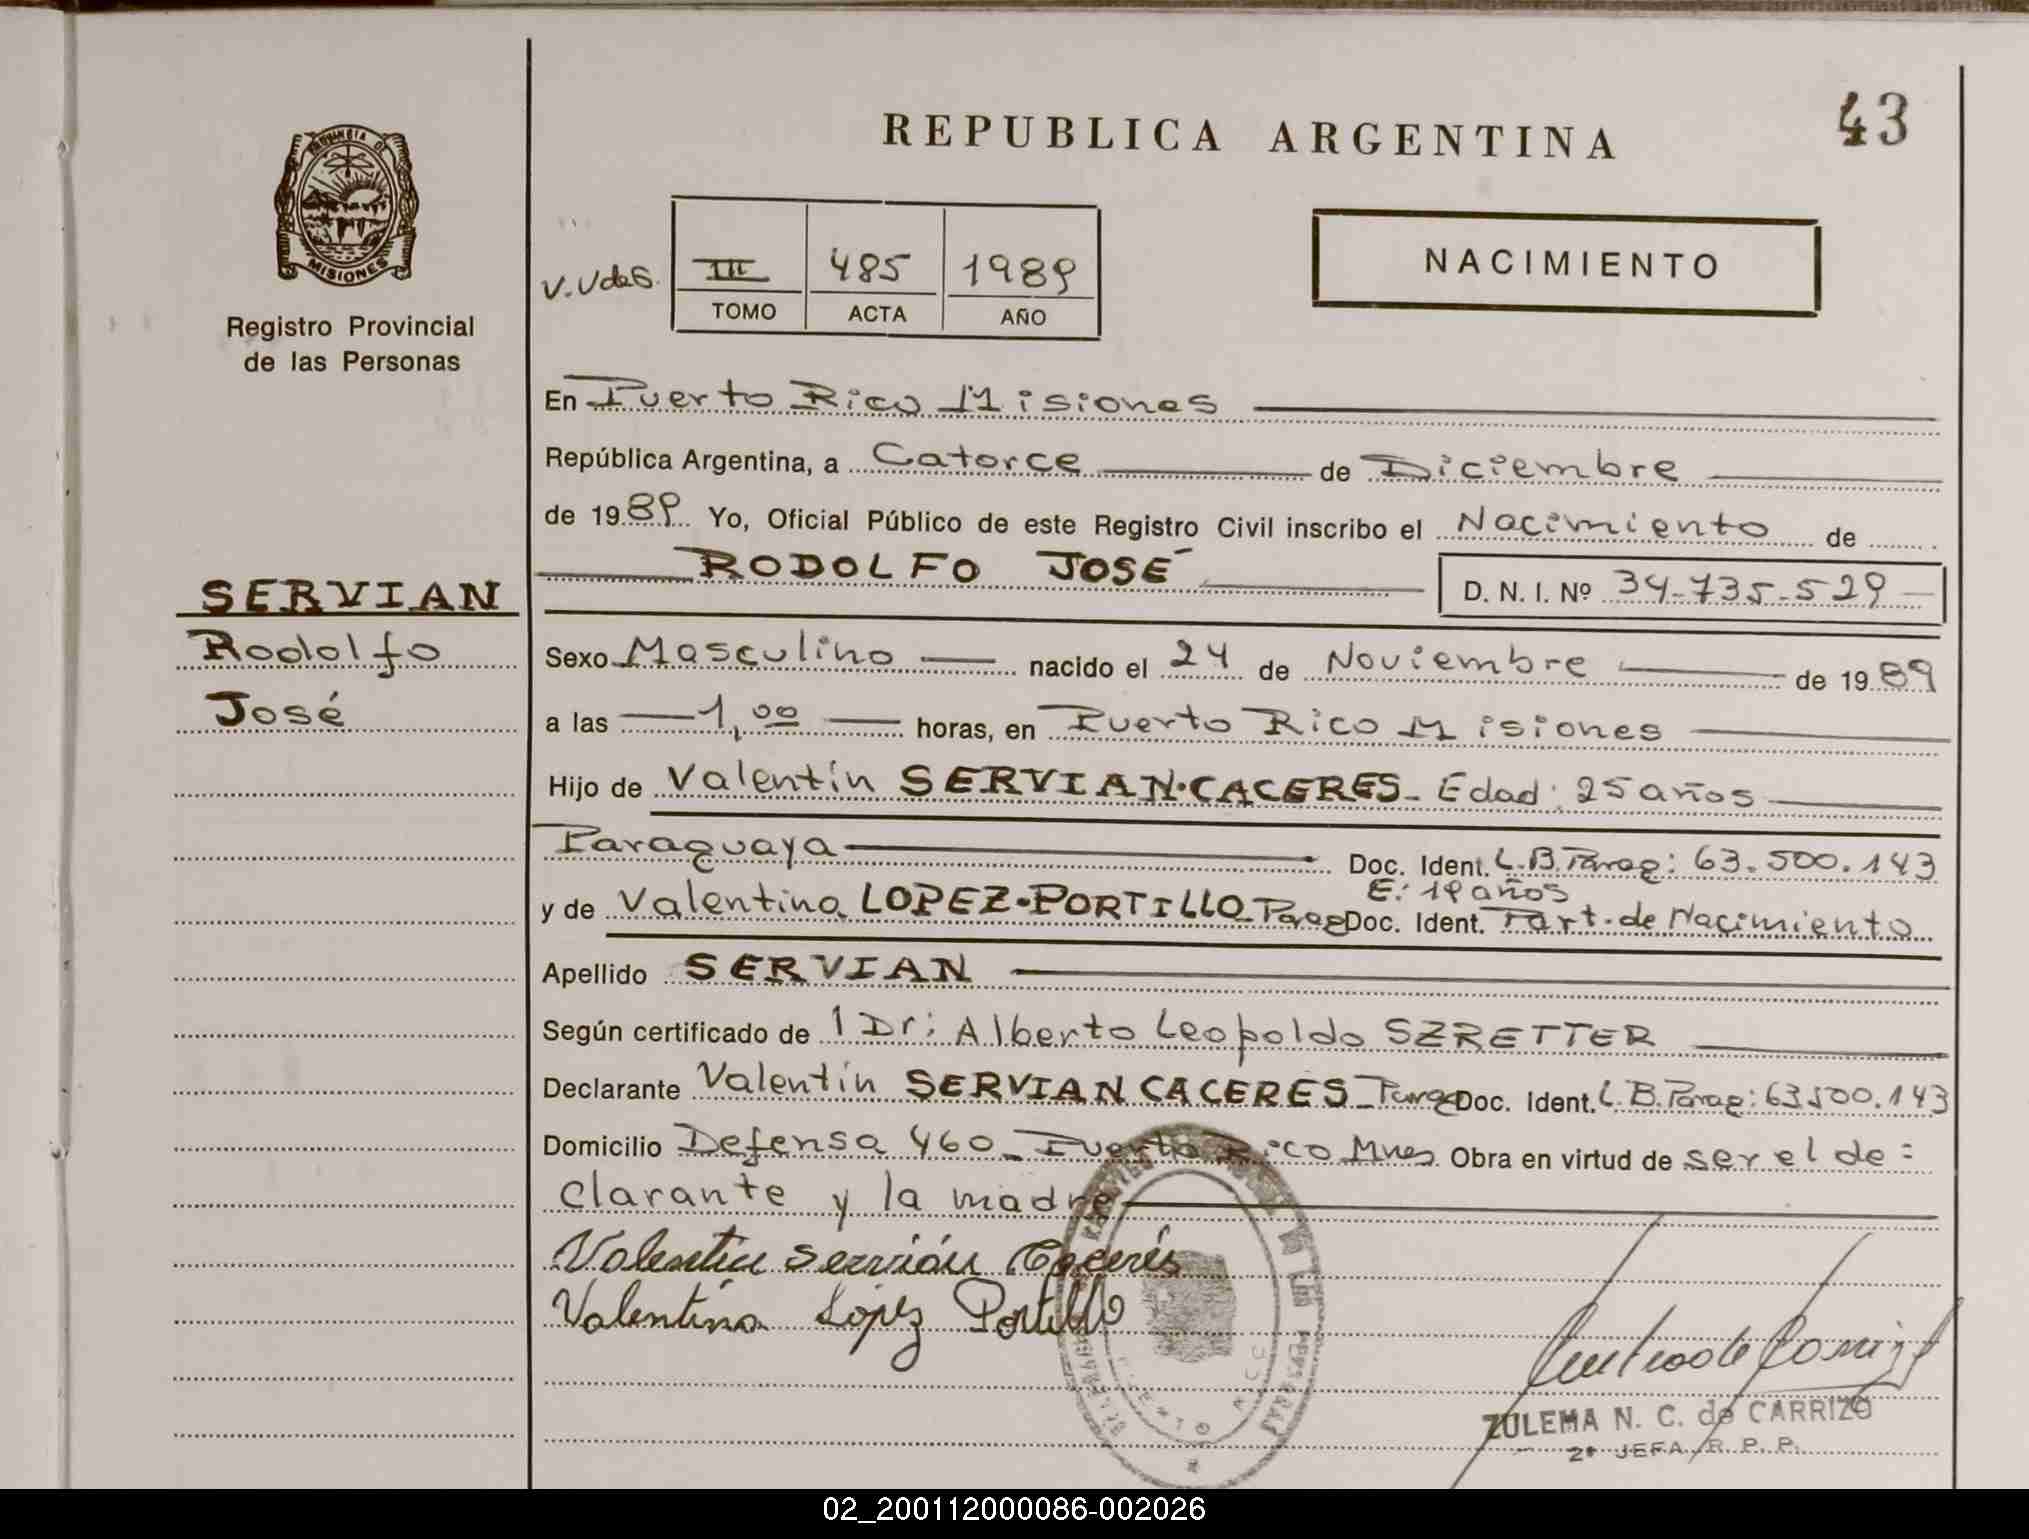 43
REPUBLICA ARGENTINA
PROVINCIA DE
MISIONES
Registro Provincial
de las Personas
V.VdeS.
III 485 1989
TOMO ACTA AÑO
NACIMIENTO
En Puerto Rico Misiones
República Argentina, a Catorce de Diciembre
de 1989 Yo, Oficial Público de este Registro Civil inscribo el Nacimiento de
RODOLFO JOSÉ D. N. I. Nº 34-735-529
SERVIAN
Rodolfo
José
Sexo Masculino nacido el 24 de Noviembre de 1989
a las 1,00 horas, en Puerto Rico Misiones
Hijo de Valentín SERVIAN-CACERES- Edad: 25 años
Paraguaya Doc. Ident. L.B.Parag: 63.500.143
E: 19 años
y de Valentina LOPEZ-PORTILLO-Parag Doc. Ident. Part. de Nacimiento
Apellido SERVIAN
Según certificado de 1 Dr: Alberto Leopoldo SZRETTER
Declarante Valentín SERVIAN CACERES-Parag Doc. Ident. L.B.Parag: 63500.143
Domicilio Defensa 460- Puerto Rico Mnes Obra en virtud de ser el de=
clarante y la madre
Valentin Servián Caceres
Valentina López Portillo
PUERTO RICO
ZULEMA N. C. de CARRIZO
2ª JEFA R. P. P.
02_200112000086-002026